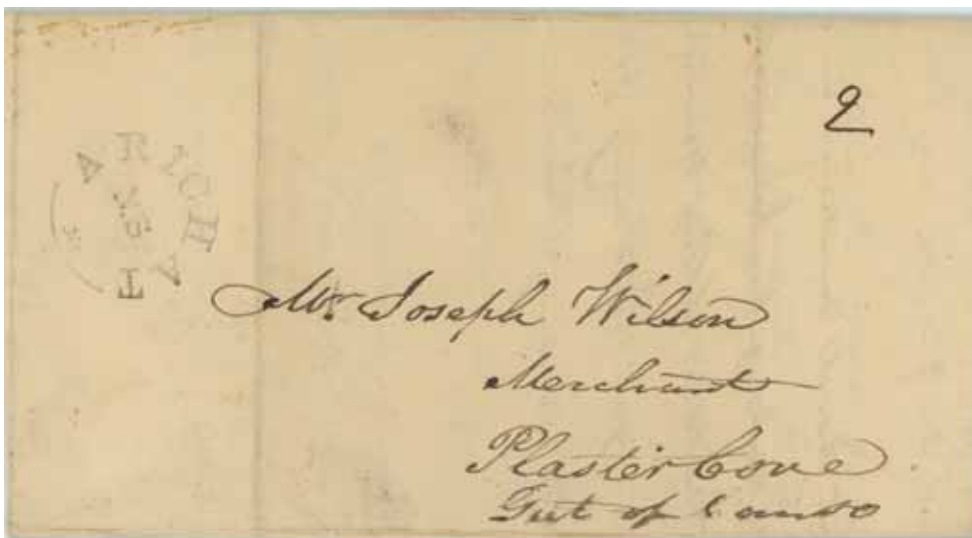 2
ARICHAT
N.S.
Mr. Joseph Wilson
Merchant
Plaster Cove
Gut of Canso